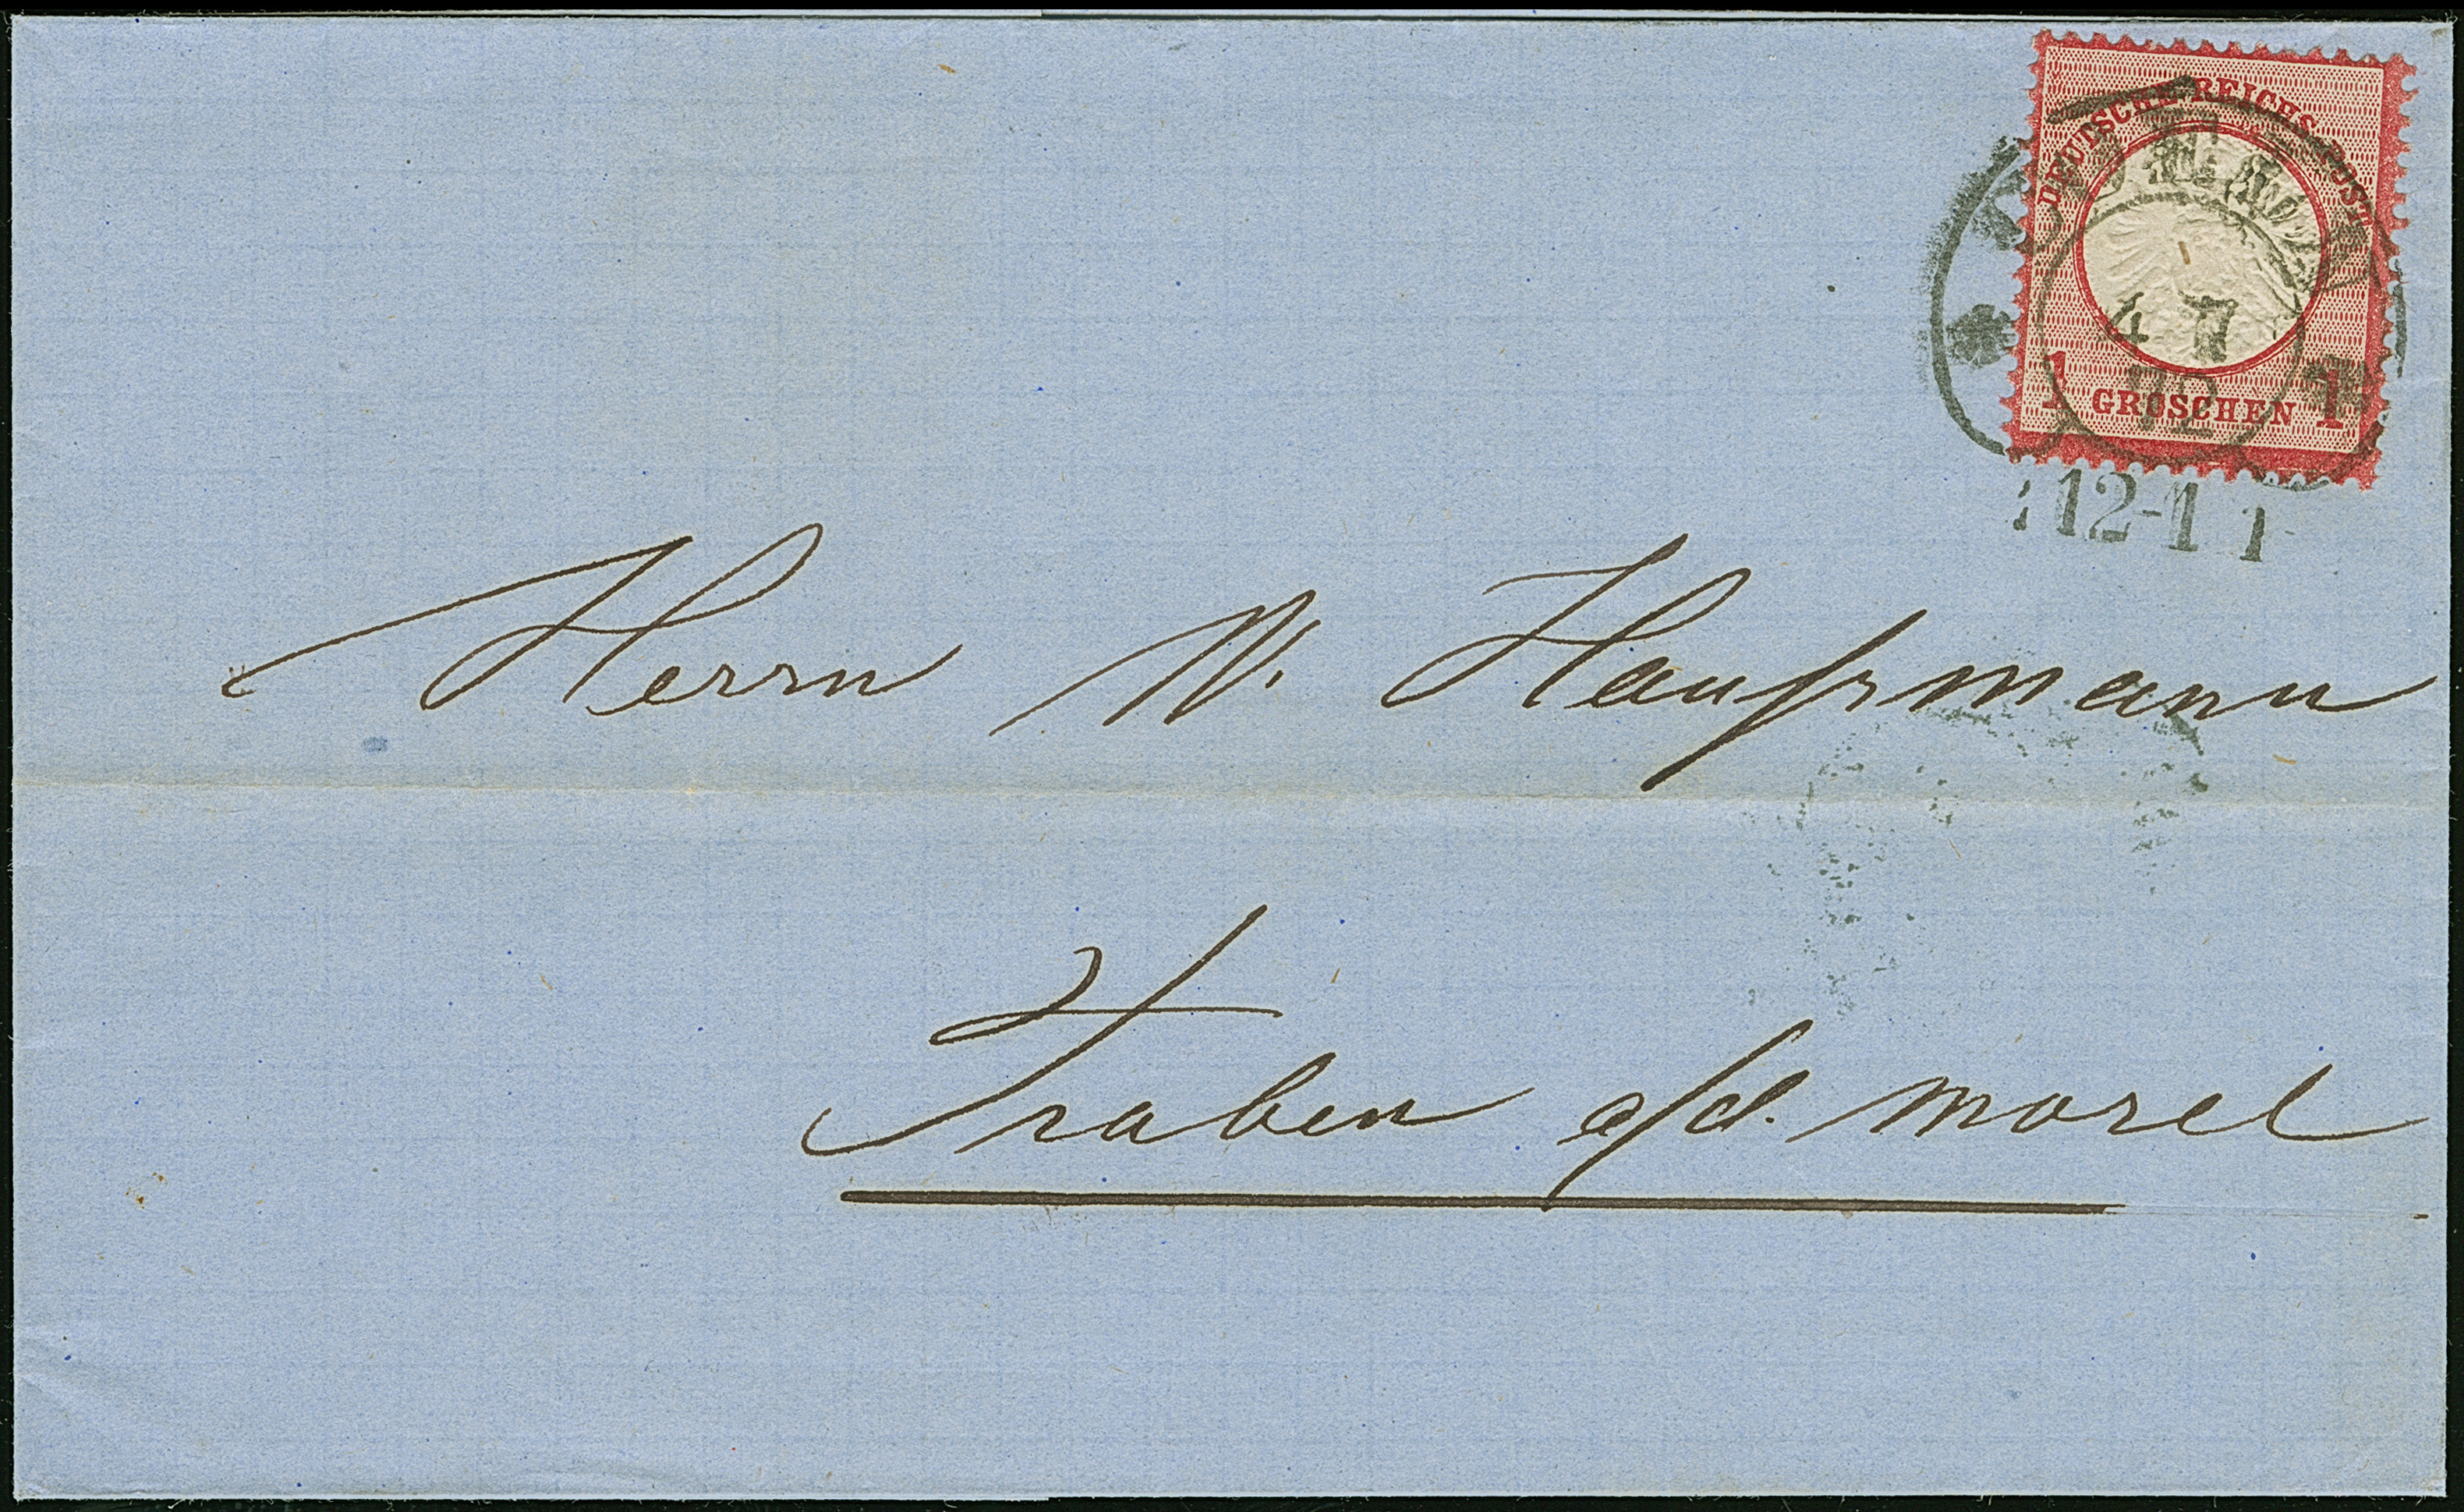 DEUTSCHE REICHS-POST
4 7
72
1 GROSCHEN 1
12-1
Herrn W. Haußmann
Traben a/d. Mosel